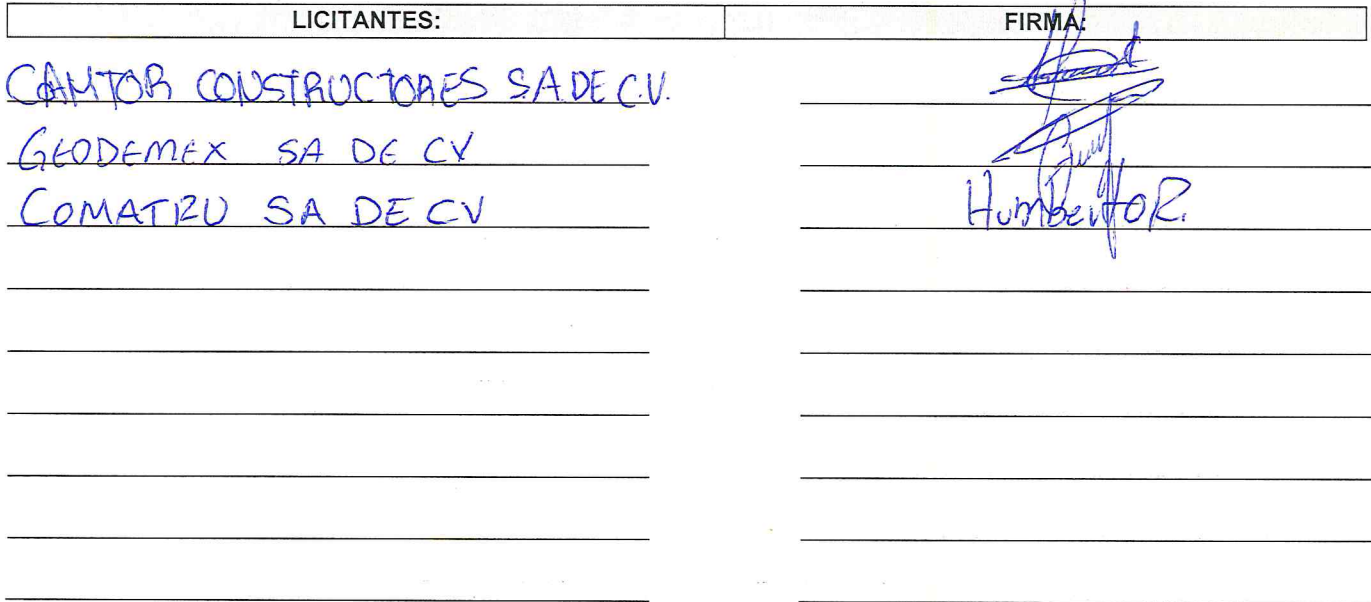 LICITANTES: FIRMA:
CAMTOR CONSTRUCTORES S.A DE C.V.
GEODEMEX SA DE CV
COMATRU SA DE CV Humberto R.